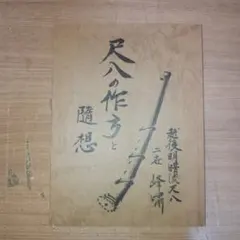 尺八の作り方と
随想
越後明暗流尺八
二世 峰晴